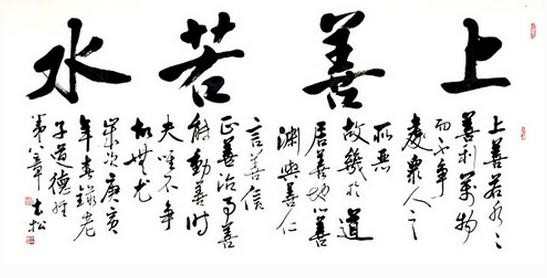 上善若水
上善若水々
善利萬物
而不爭
處衆人之
所惡
故幾於道
居善地心善
淵與善仁
言善信
正善治事善
能動善時
夫唯不爭
故無尤
歲次庚寅
年春錄老
子道德經
第八章